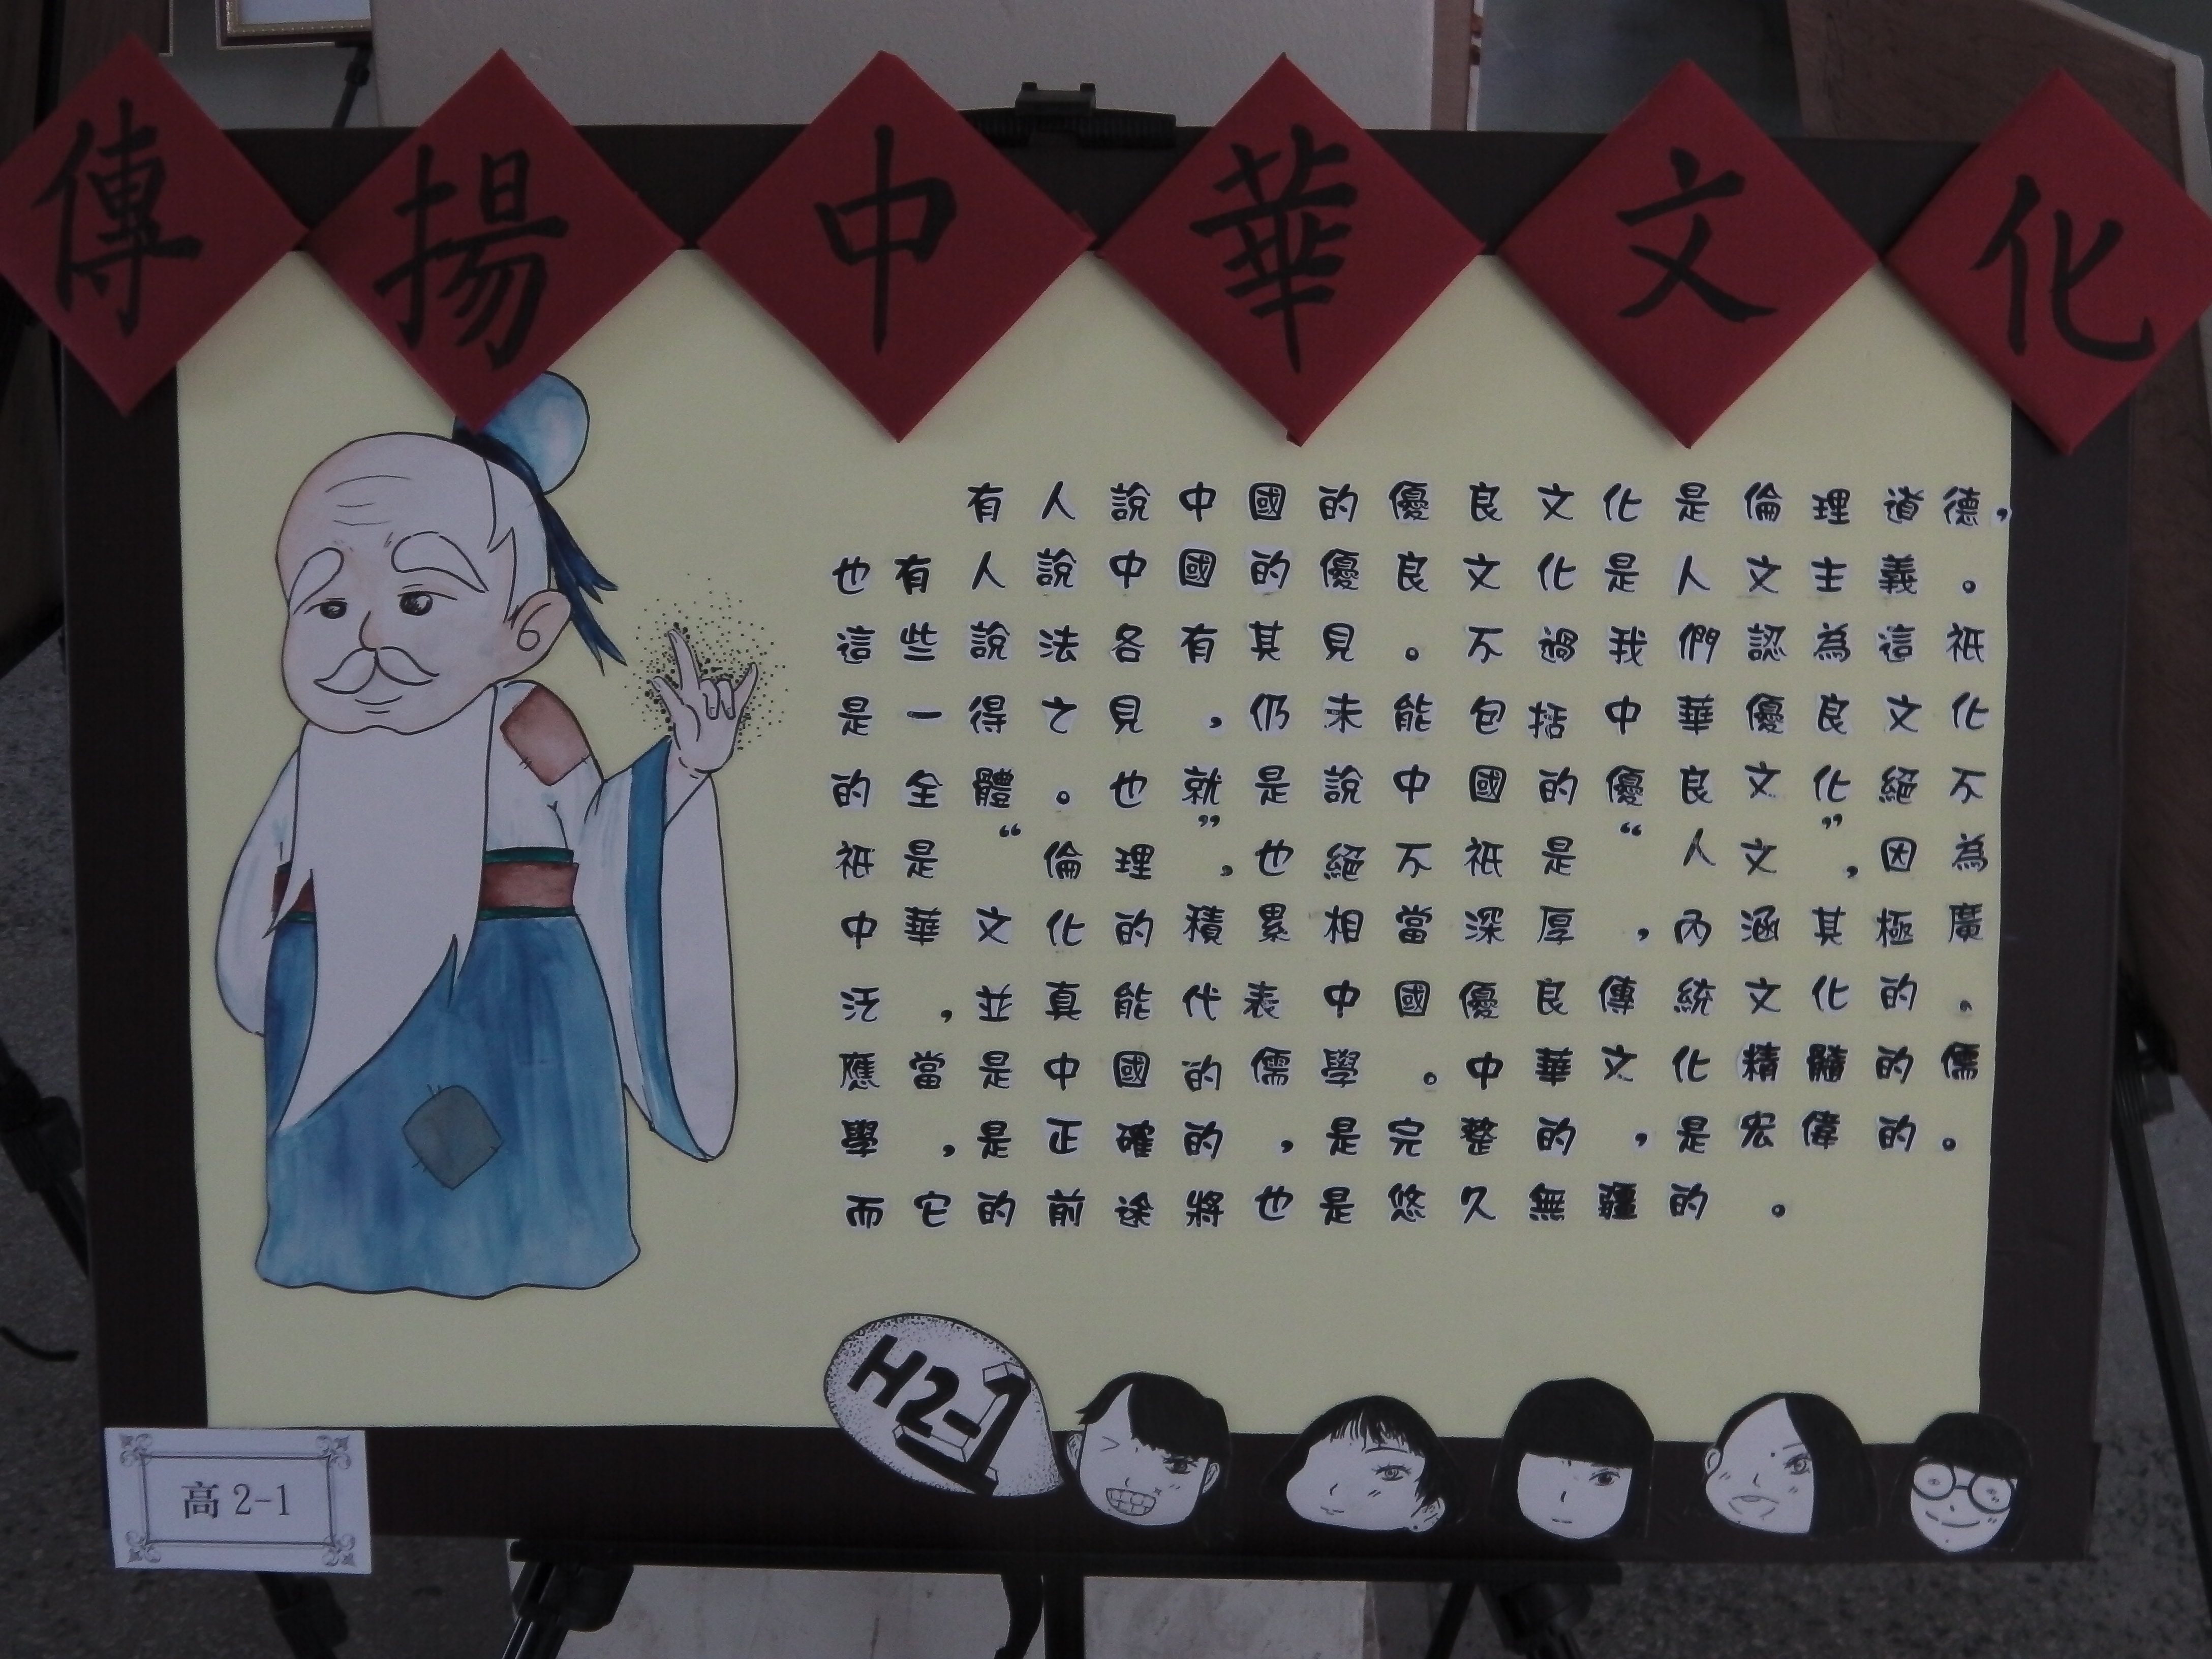 傳揚中華文化
有人說中國的優良文化是倫理道德，
也有人說中國的優良文化是人文主義。
這些說法各有其見。不過我們認為這祇
是一得之見，仍未能包括中華優良文化
的全體。也就是說中國的優良文化絕不
祇是“倫理”，也絕不祇是“人文”，因為
中華文化的積累相當深厚，內涵其極廣
泛，並真能代表中國優良傳統文化的。
應當是中國的儒學。中華文化精髓的儒
學，是正確的，是完整的，是宏偉的。
而它的前途將也是悠久無疆的。
H2-1
高2-1